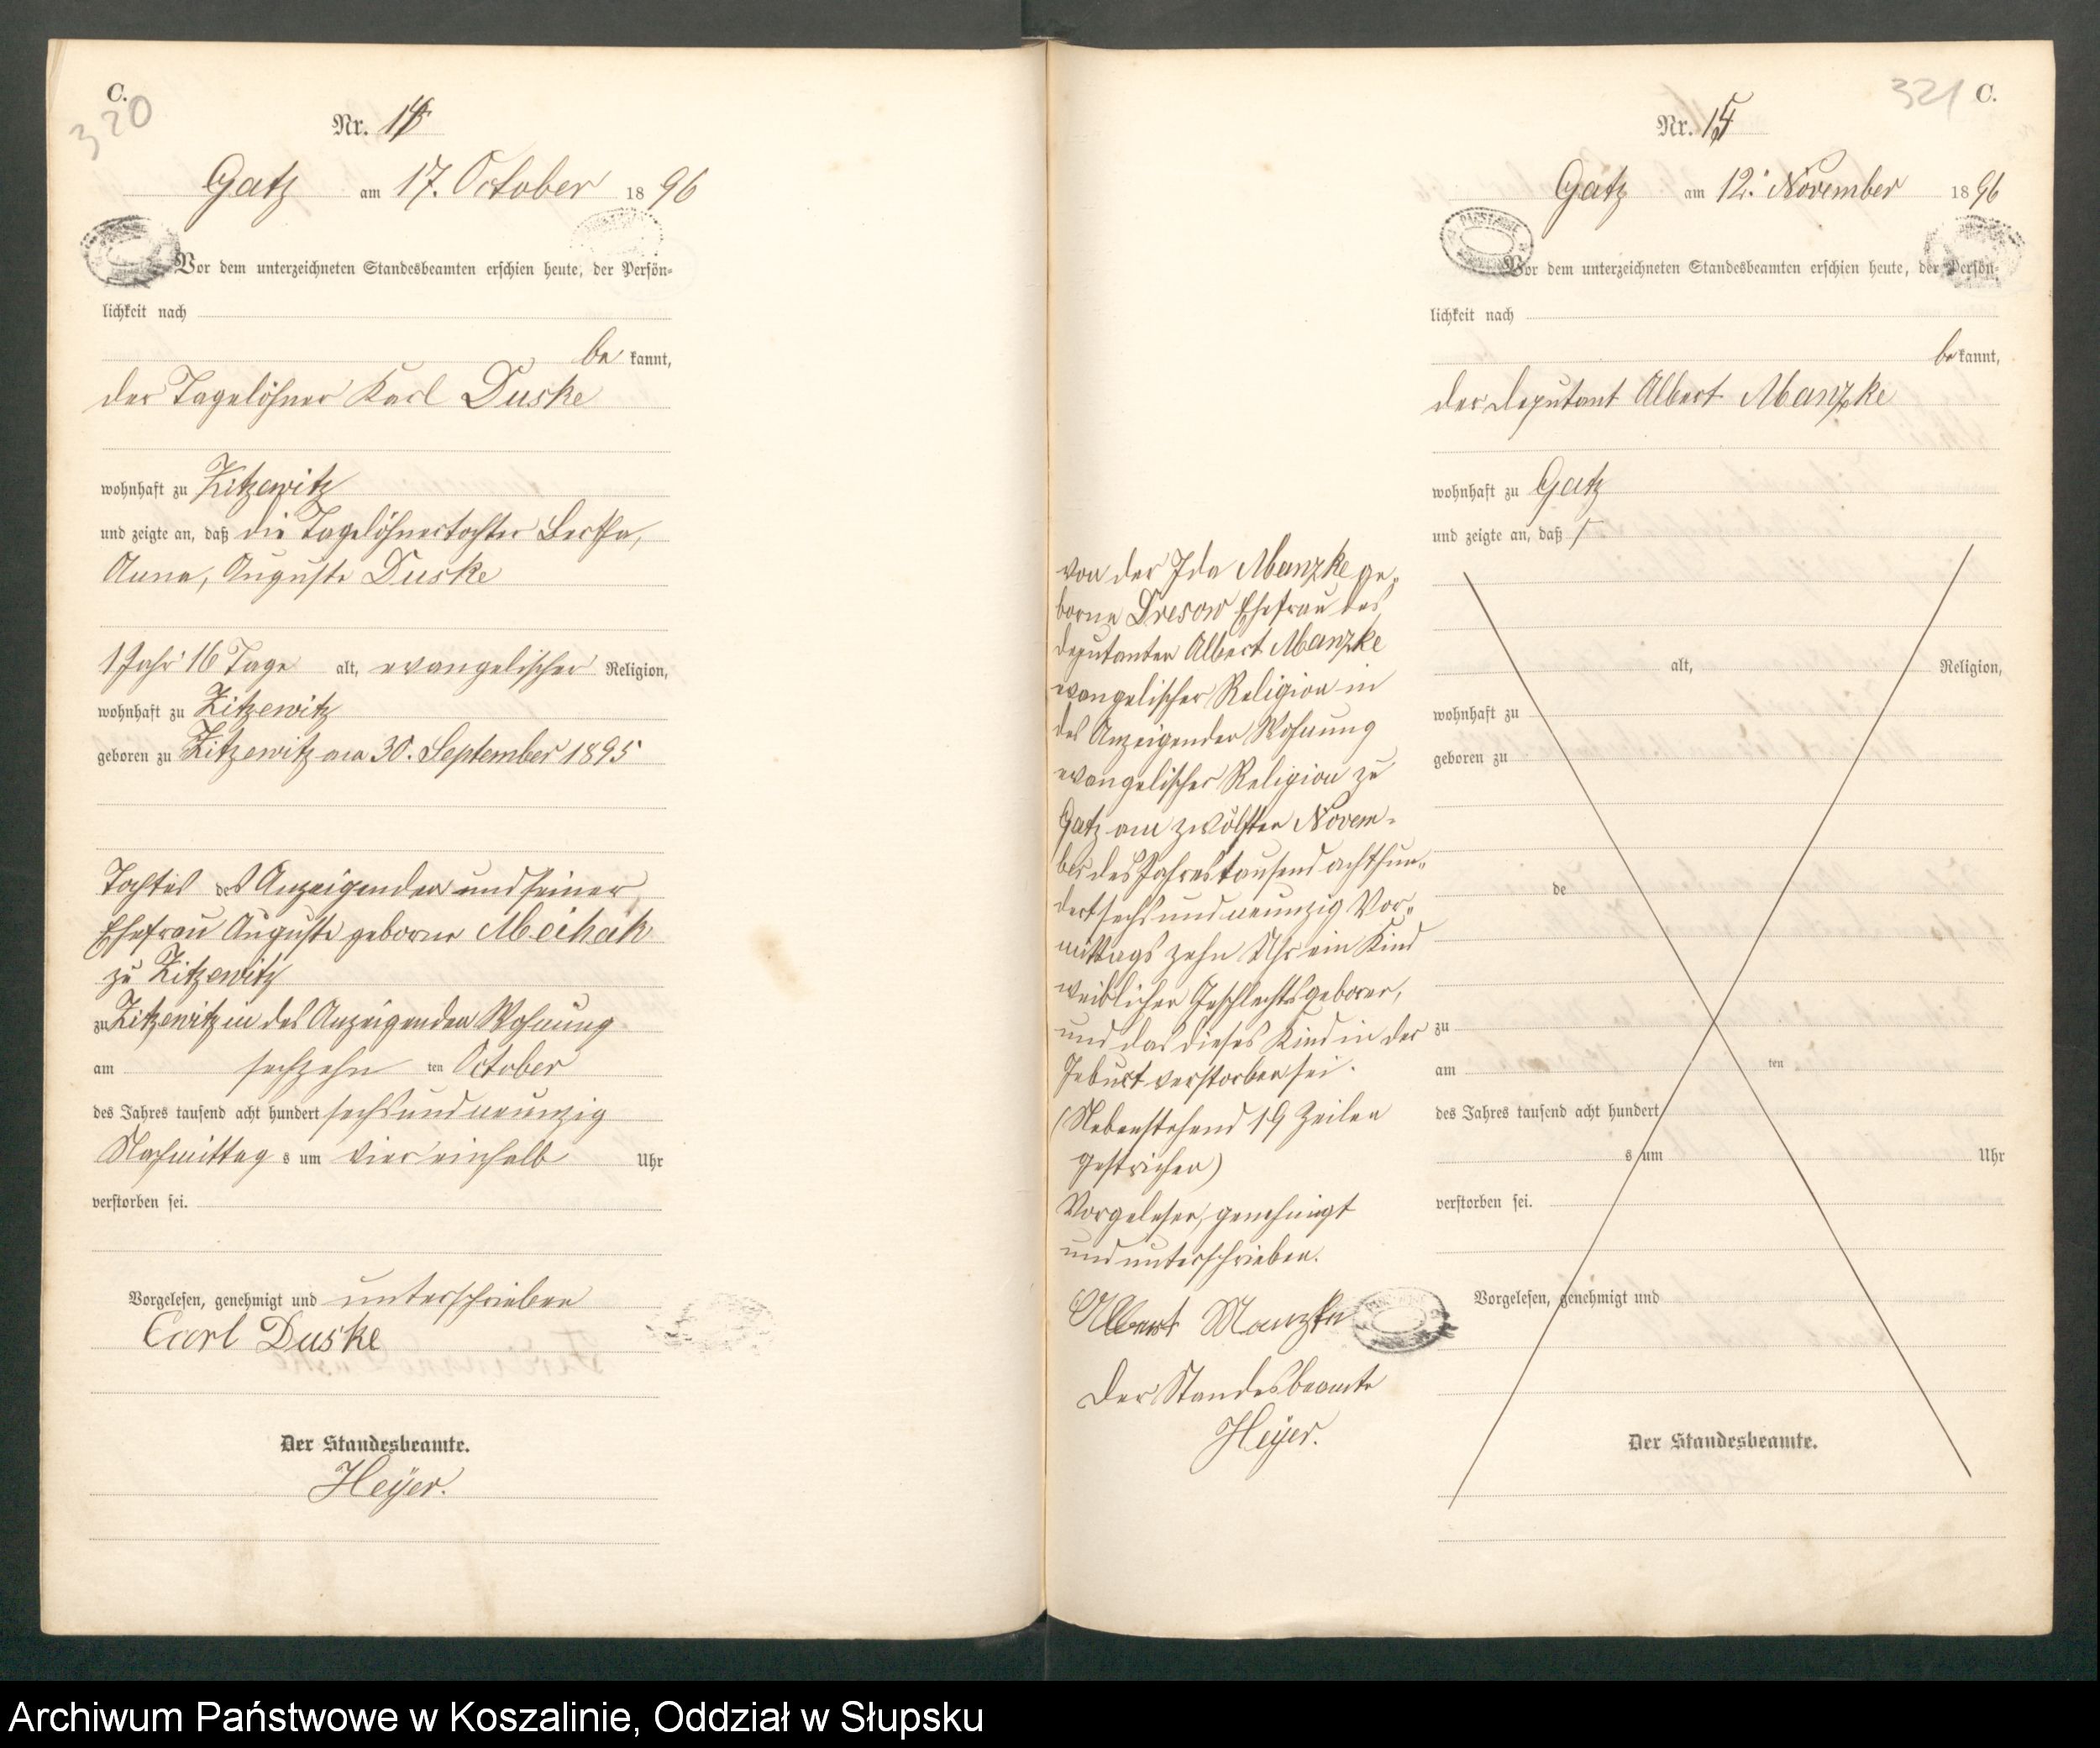 C.
320
Nr. 14
Gatz am 17. October 1896
Vor dem unterzeichneten Standesbeamten erschien heute, der Persön-
lichkeit nach
be kannt,
der Tagelöhner Karl Duske
wohnhaft zu Zitzewitz
und zeigte an, daß die Tagelöhnertochter Bertha,
Anna, Auguste Duske
1 Jahr 16 Tage alt, evangelischer Religion,
wohnhaft zu Zitzewitz
geboren zu Zitzewitz am 30. September 1895
Tochter des Anzeigenden und seiner
Ehefrau Auguste geborne
zu Zitzewitz
zu Zitzewitz in des Anzeigenden Wohnung
am sechzehn ten October
des Jahres tausend acht hundert sechs und neunzig
Nachmittag s um vier einhalb Uhr
verstorben sei.
Vorgelesen, genehmigt und unterschrieben
Carl Duske
Der Standesbeamte.
Heyer.
321 C.
Nr. 15
Gatz am 12. November 1896
Vor dem unterzeichneten Standesbeamten erschien heute, der Persön-
lichkeit nach
be kannt,
der Deputant Albert Manzke
wohnhaft zu Gatz
und zeigte an, daß
von der Ida Manzke ge-
borne Dresow Ehefrau des
Deputanten Albert Manzke
evangelischer Religion in
des Anzeigenden Wohnung
evangelischer Religion zu
Gatz am zwölften Novem-
ber des Jahres tausend achthun-
dert sechs und neunzig Vor-
mittags zehn Uhr ein Kind
weiblichen Geschlechts geboren,
und das dieses Kind in der
Geburt verstorben sei.
(Nebenstehend 19 Zeilen
gestrichen)
Vorgelesen, genehmigt
und unterschrieben.
Albert Manzke
Der Standesbeamte
Heyer.
alt, Religion,
wohnhaft zu
geboren zu
de
zu
am ten
des Jahres tausend acht hundert
s um Uhr
verstorben sei.
Vorgelesen, genehmigt und
Der Standesbeamte.
Archiwum Państwowe w Koszalinie, Oddział w Słupsku